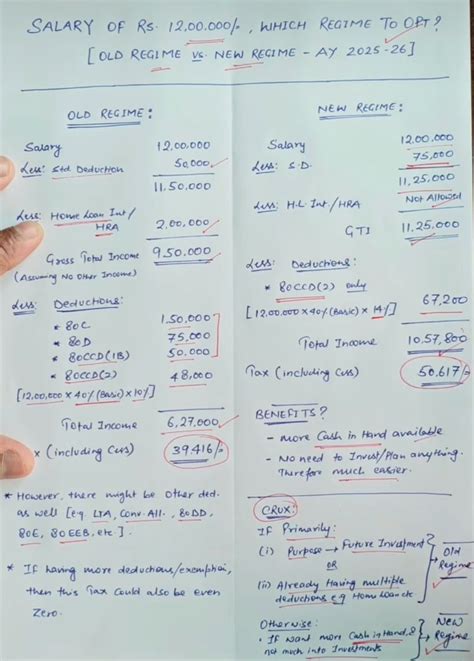 SALARY OF RS. 12,00.000/-, WHICH REGIME TO OPT?
[OLD REGIME VS. NEW REGIME - AY 2025-26]
OLD REGIME:
Salary 12,00.000
Less: Std. Deduction 50,000
11,50.000
Less: Home Loan Int/ HRA 2,00.000
Gross Total Income 9,50.000
(Assuming No Other Income)
Less: Deductions:
* 80C 1,50.000
* 80D 75,000
* 80CCD(1B) 50.000
* 80CCD(2) 48,000
[12,00,000 x 40% (Basic) x 10%]
Total Income 6,27.000
x (including Cess) 39,416/-
* However, there might be Other ded.
as well [eg. LTA, Conv. All., 80DD,
80E, 80EEB, etc.].
* If having more deductions/exemption,
then this Tax could also be even
Zero.
NEW REGIME:
Salary 12,00.000
Less: S.D. 75,000
11,25.000
Less: H.L. Int/HRA Not Allowed
GTI 11,25.000
Less: Deductions:
* 80CCD(2) only
[12,00.000 x 40% (Basic) x 14%] 67,200
Total Income 10,57,800
Tax (including Cess) 50,617/-
BENEFITS?
- more Cash in Hand available
- No need to Invest/Plan anything.
Therefore much easier.
CRUX:
If Primarily:
(i) Purpose → Future Investment
OR
(ii) Already Having multiple
deductions e.g Home Loan etc
→ Old Regime
Otherwise:
• If want more Cash in Hand &
not much into Investments
→ NEW Regime